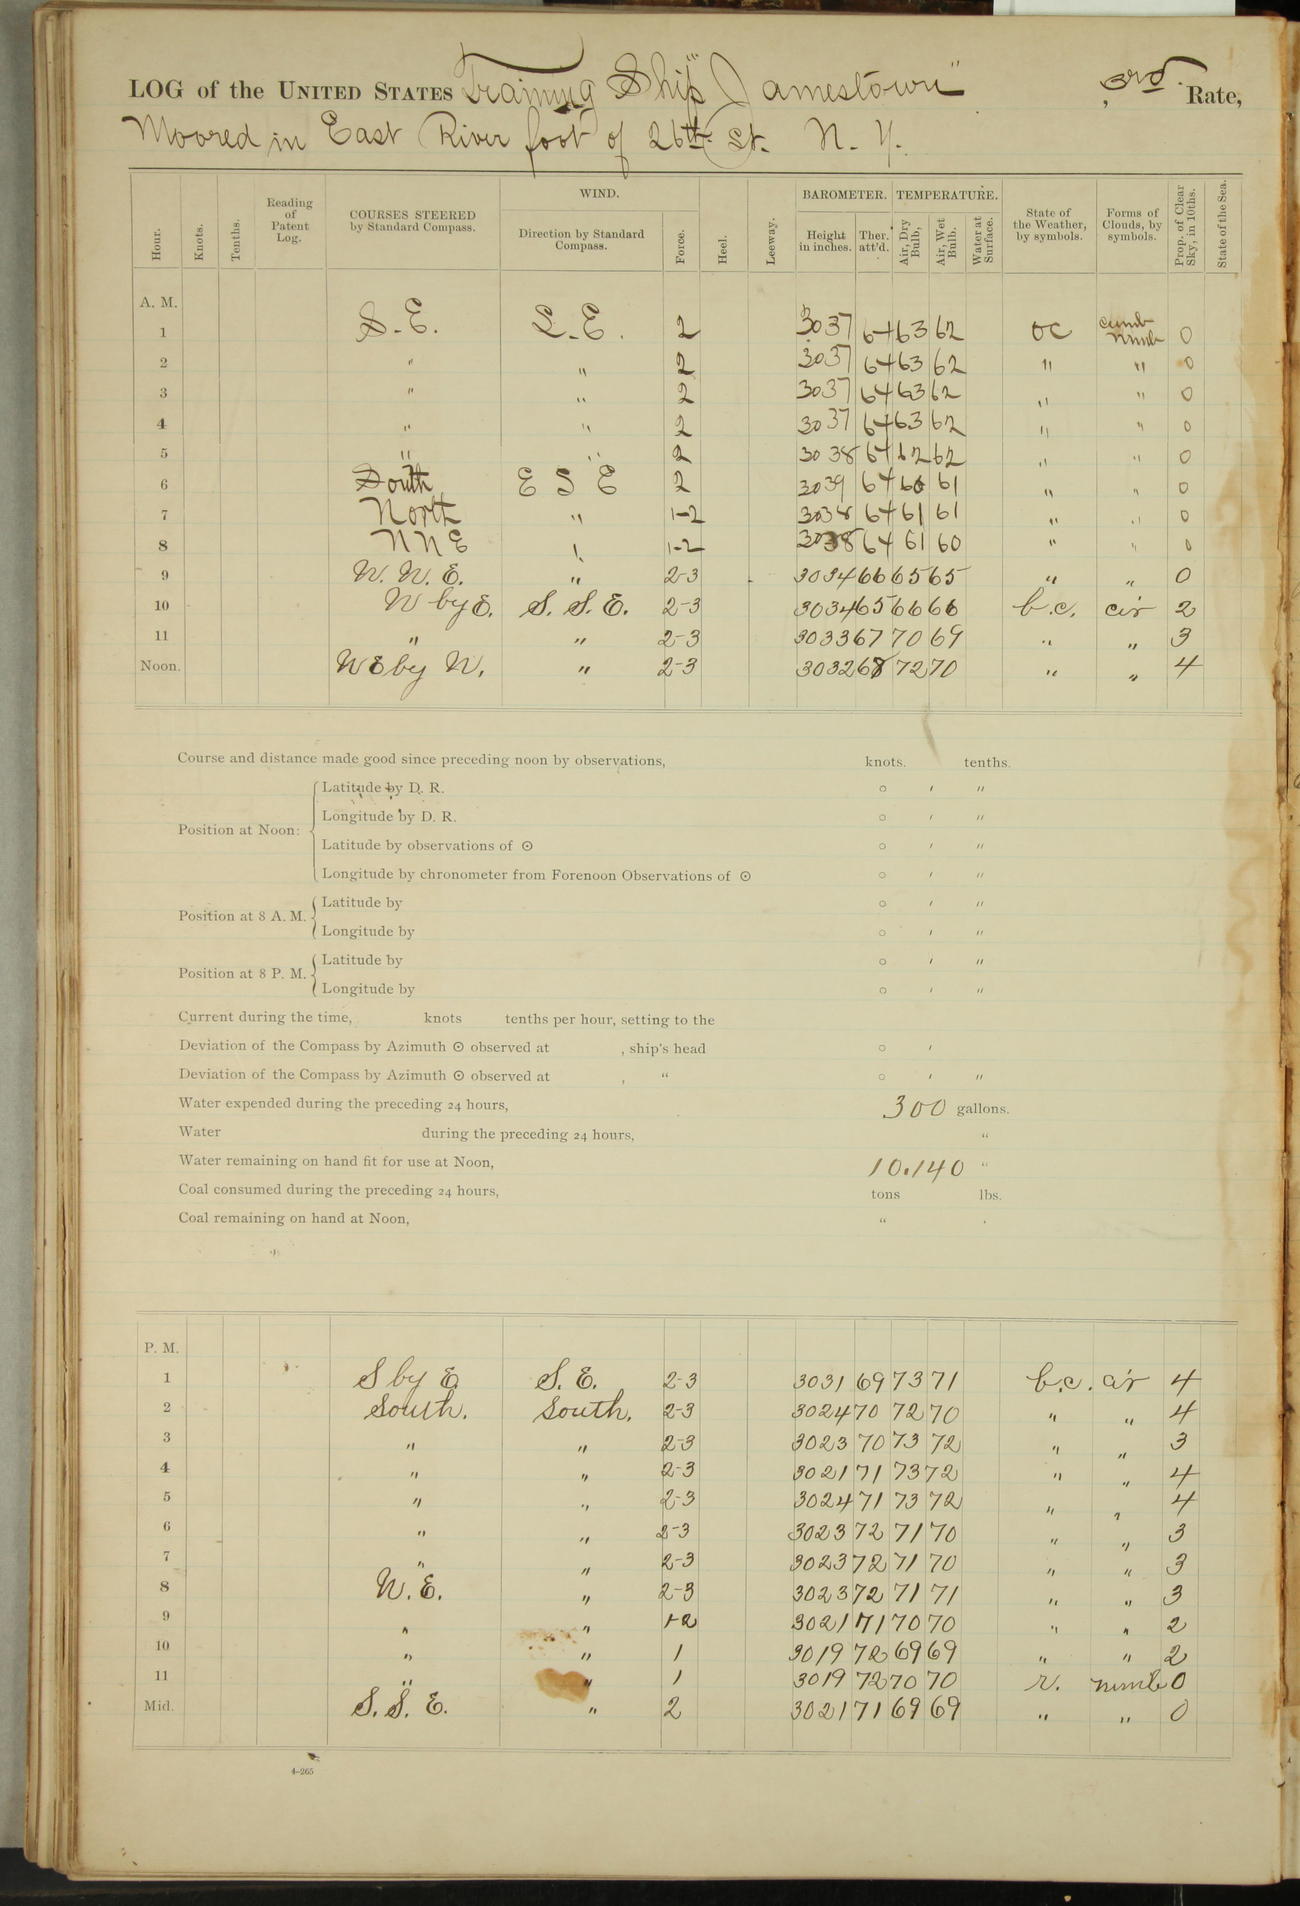 LOG of the UNITED STATES Training Ship "Jamestown", 3rd Rate,
Moored in East River foot of 26th St. N. Y.
Hour. Knots. Tenths. Reading of Patent Log. COURSES STEERED by Standard Compass. WIND. Direction by Standard Compass. Force. Heel. Leeway. BAROMETER. Height in inches. Ther. att'd. TEMPERATURE. Air, Dry Bulb, Air, Wet Bulb. Water at Surface. State of the Weather, by symbols. Forms of Clouds, by symbols. Prop. of Clear Sky, in 10ths. State of the Sea.
A. M.
1 S.E. S.E. 2 3037 64 63 62 oc cumb nimb 0
2 " " 2 3037 64 63 62 " " 0
3 " " 2 3037 64 63 62 " " 0
4 " " 2 3037 64 63 62 " " 0
5 " " 2 3038 64 62 62 " " 0
6 South E S E 2 3039 64 60 61 " " 0
7 North " 1-2 3038 64 61 61 " " 0
8 N N E " 1-2 3038 64 61 60 " " 0
9 N. N. E. " 2-3 3034 66 65 65 " " 0
10 N by E. S. S. E. 2-3 3034 65 66 66 b.c. cir 2
11 " " 2-3 3033 67 70 69 " " 3
Noon. NE by N. " 2-3 3032 68 72 70 " " 4
Course and distance made good since preceding noon by observations, knots. tenths.
Position at Noon:
Latitude by D. R. ° ′ ″
Longitude by D. R. ° ′ ″
Latitude by observations of ☉ ° ′ ″
Longitude by chronometer from Forenoon Observations of ☉ ° ′ ″
Position at 8 A. M.
Latitude by ° ′ ″
Longitude by ° ′ ″
Position at 8 P. M.
Latitude by ° ′ ″
Longitude by ° ′ ″
Current during the time, knots tenths per hour, setting to the
Deviation of the Compass by Azimuth ☉ observed at , ship's head ° ′
Deviation of the Compass by Azimuth ☉ observed at , " ° ′ ″
Water expended during the preceding 24 hours, 300 gallons.
Water during the preceding 24 hours, "
Water remaining on hand fit for use at Noon, 10.140 "
Coal consumed during the preceding 24 hours, tons lbs.
Coal remaining on hand at Noon, "
P. M.
1 S by E S. E. 2-3 3031 69 73 71 b.c. cir 4
2 South. South. 2-3 3024 70 72 70 " " 4
3 " " 2-3 3023 70 73 72 " " 3
4 " " 2-3 3021 71 73 72 " " 4
5 " " 2-3 3024 71 73 72 " " 4
6 " " 2-3 3023 72 71 70 " " 3
7 " " 2-3 3023 72 71 70 " " 3
8 N. E. " 2-3 3023 72 71 71 " " 3
9 " " 1-2 3021 71 70 70 " " 2
10 " " 1 3019 72 69 69 " " 2
11 " " 1 3019 72 70 70 r. nimb 0
Mid. S. S. E. " 2 3021 71 69 69 " " 0
4-265